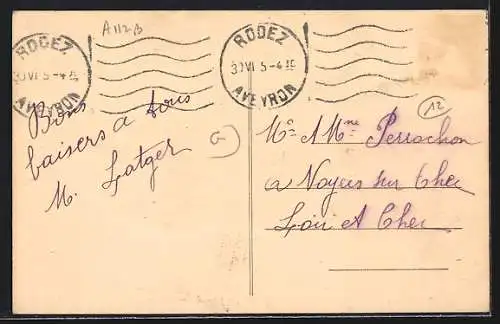 A112B
RODEZ
30 VI 5-4
AVEYRON
RODEZ
30 VI 5-4
AVEYRON
Bons
baisers a tous
M. Latger
G
12
Mr A Mme Perrochon
a Noyers sur Cher
Loir et Cher